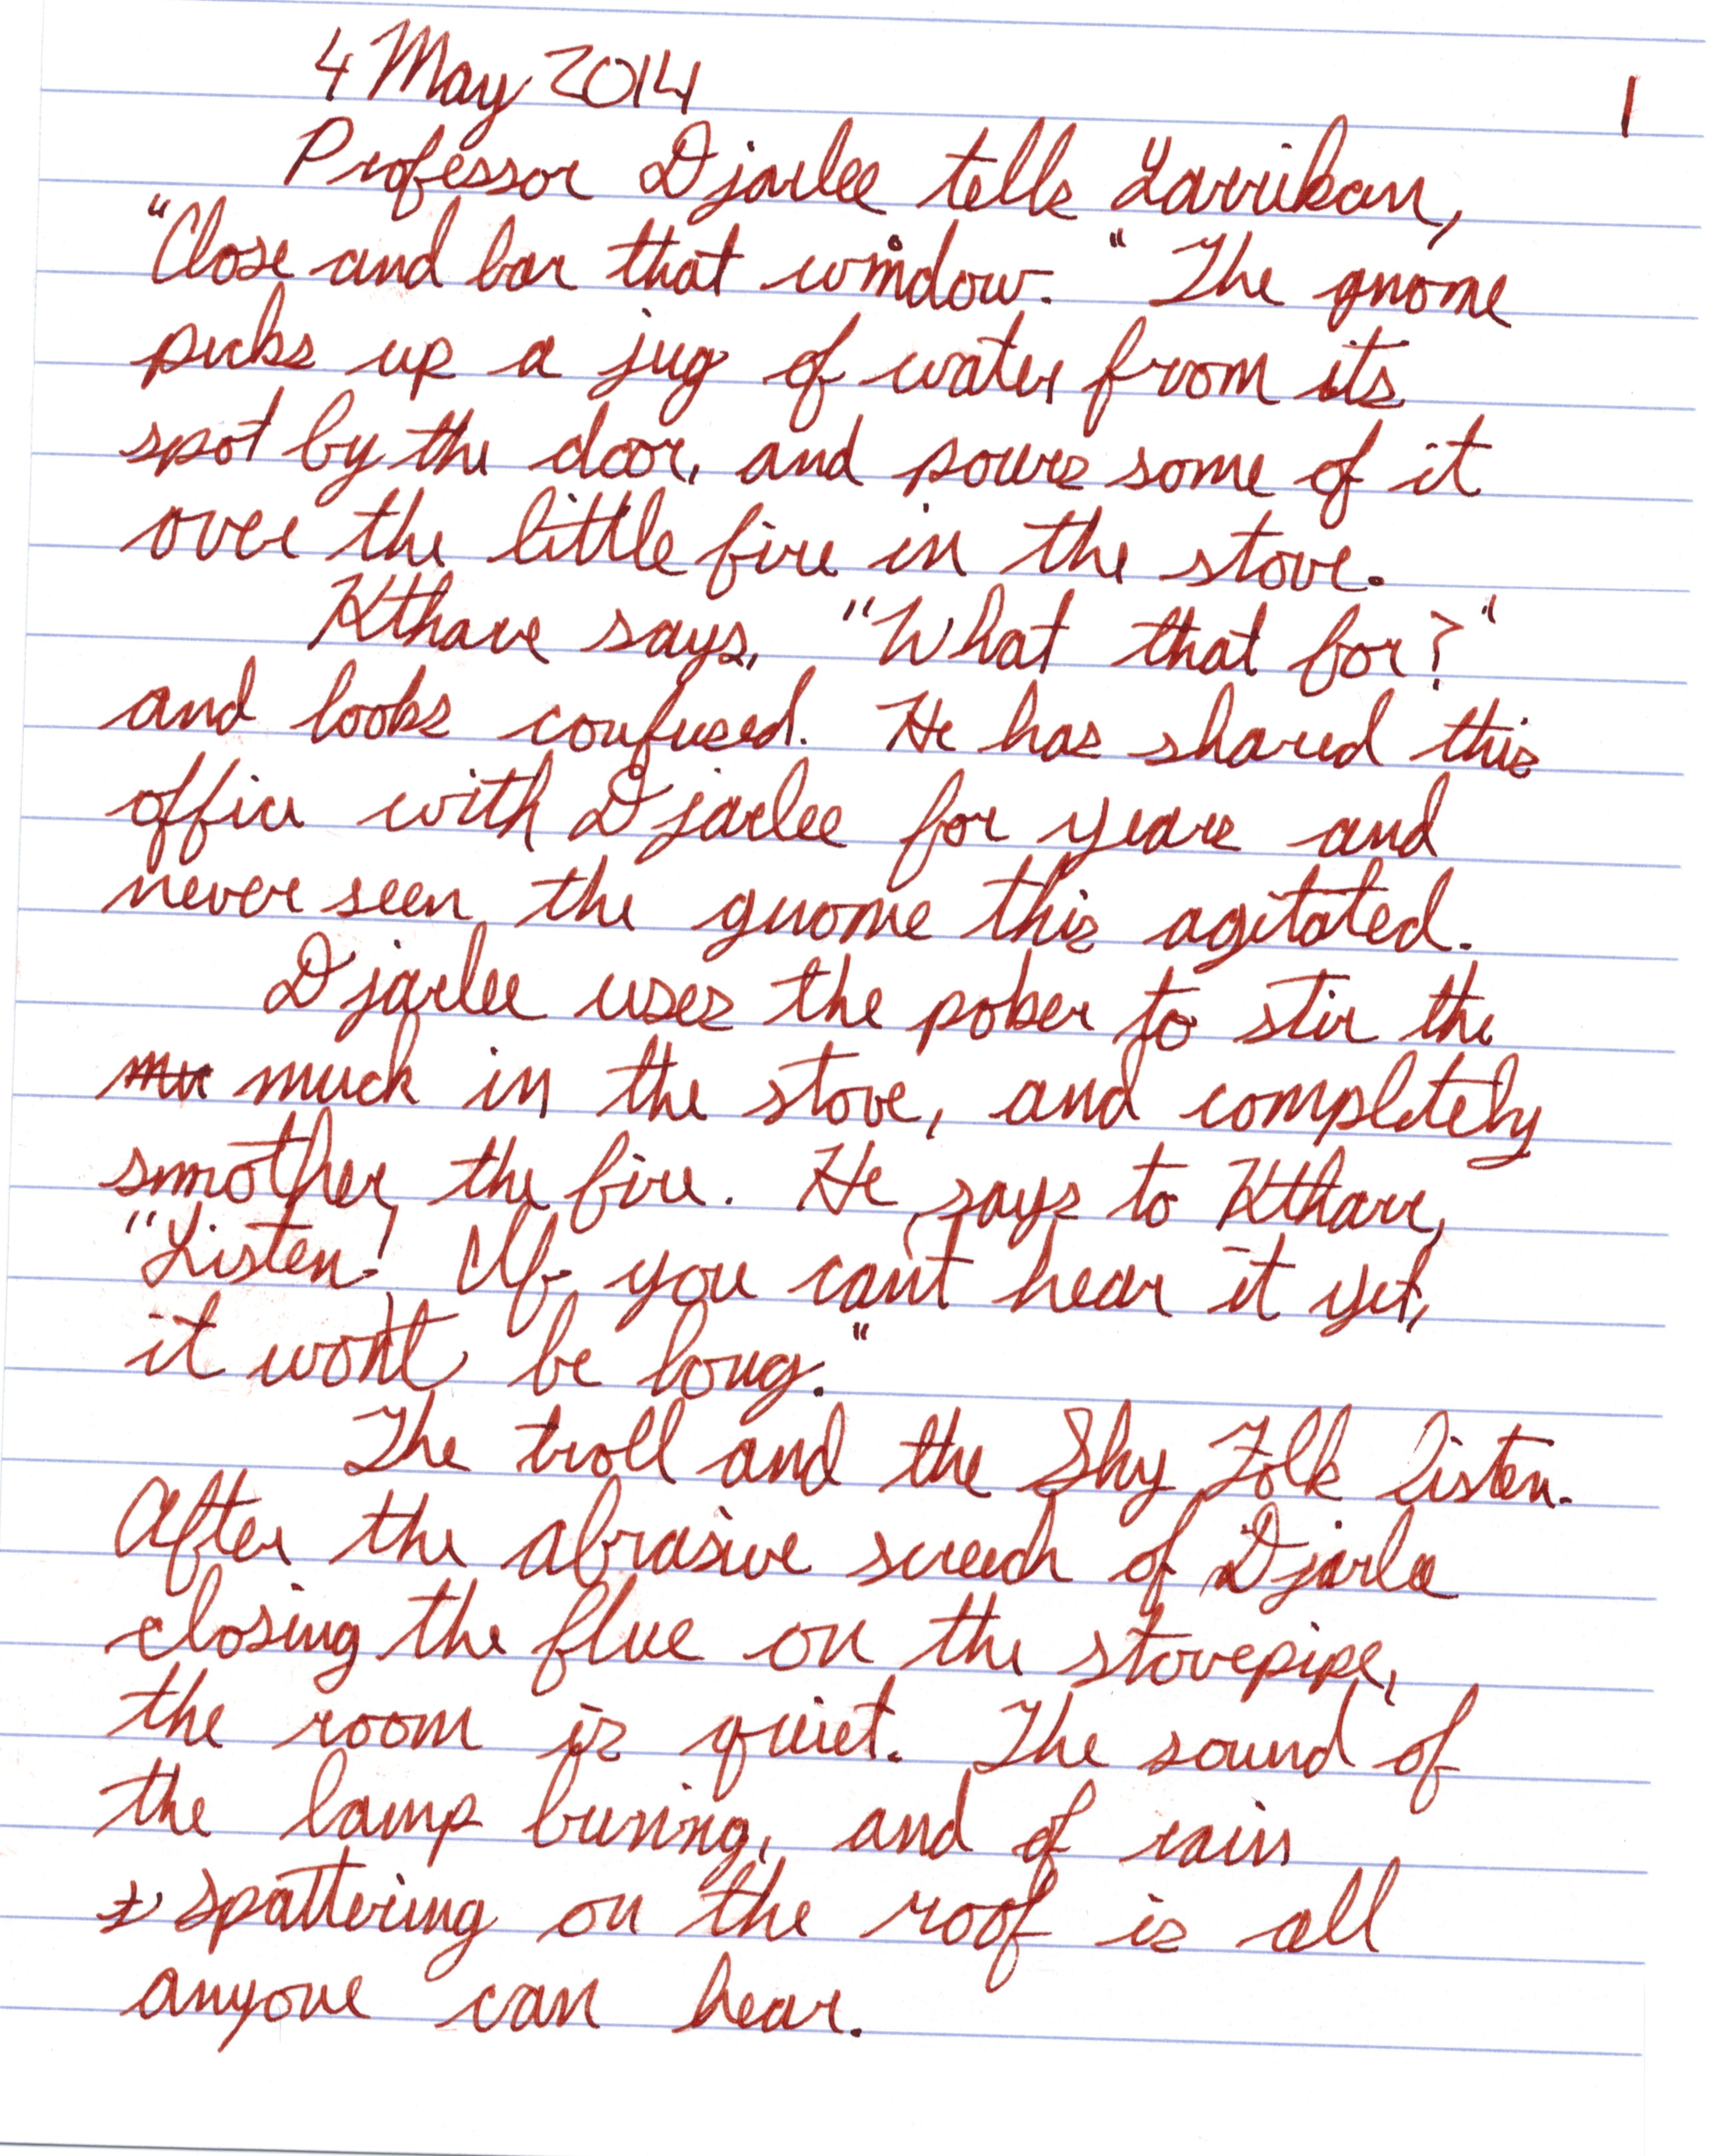 4 May 2014
1
Professor Djarlee tells Larrikan,
"Close and bar that window." The gnome
picks up a jug of water from its
spot by the door, and pours some of it
over the little fire in the stove.
Ktharr says, "What that for?"
and looks confused. He has shared this
office with Djarlee for years and
never seen the gnome this agitated.
Djarlee uses the poker to stir the
mu muck in the stove, and completely
smother the fire. He says to Ktharr,
"Listen! If you can't hear it yet,
it won't be long."
The troll and the Shy Folk listen.
After the abrasive screech of Djarlee
closing the flue on the stovepipe,
the room is quiet. The sound of
the lamp buring, and of rain
spattering on the roof is all
anyone can hear.